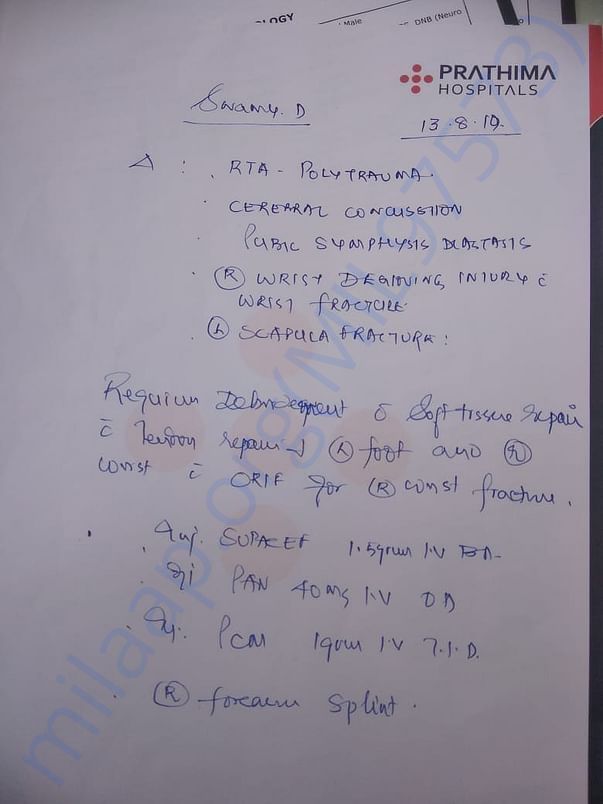 OLOGY
Male
DNB (Neuro
PRATHIMA
HOSPITALS
Swamy. D
13.8.19.
Δ : . RTA - POLYTRAUMA.
. CEREBRAL CONCUSSION
. PUBIC SYMPHYSIS DIASTASIS
. (R) WRIST DEGLOVING INJURY c̄
WRIST FRACTURE.
. (L) SCAPULA FRACTURE :
Requires Debridement c̄ Soft tissue repair
c̄ Tendon repair → (L) foot and (R)
wrist c̄ ORIF for (R) wrist fracture.
. Inj. SUPACEF 1.5gram I.V BD
. Inj PAN 40mg I.V OD
. Inj. PCM 1gram I.V T.I.D.
. (R) forearm splint.
milaap.org(MIL97573)